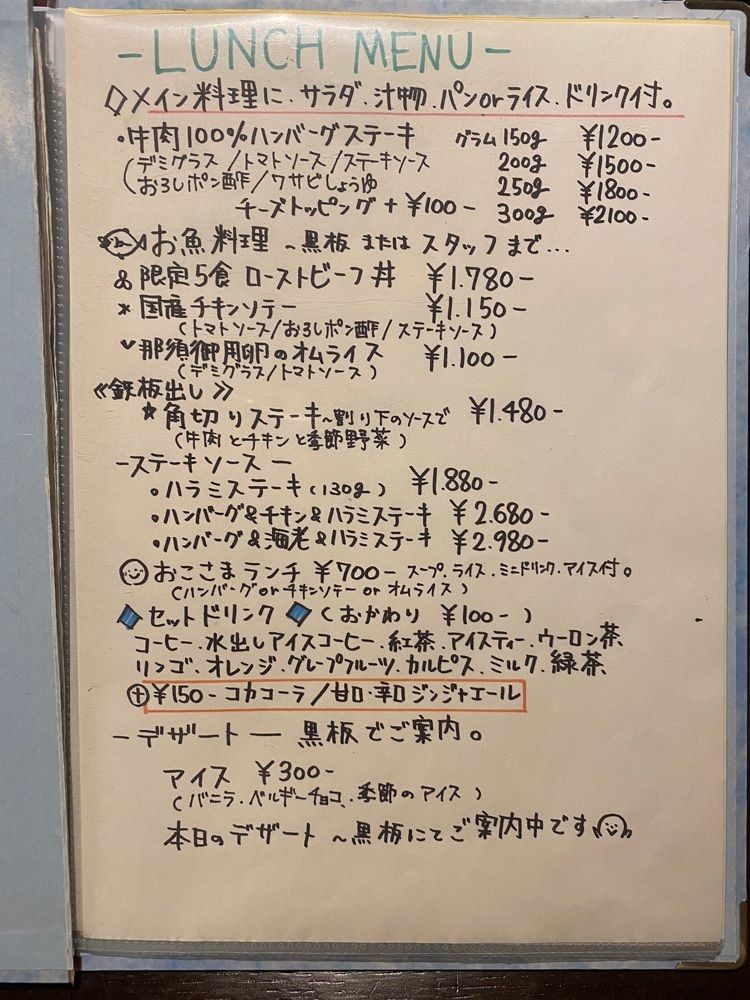 -LUNCH MENU-
◇メイン料理に、サラダ、汁物、パンorライス、ドリンク付。
・牛肉100%ハンバーグステーキ グラム 150g ¥1200-
(デミグラス/トマトソース/ステーキソース 200g ¥1500-
(おろしポン酢/ワサビしょうゆ 250g ¥1800-
チーズトッピング+¥100- 300g ¥2100-
お魚料理 ~黒板 または スタッフまで...
限定5食 ローストビーフ丼 ¥1.780-
*国産チキンソテー ¥1.150-
(トマトソース/おろしポン酢/ステーキソース)
那須御用卵のオムライス ¥1.100-
(デミグラス/トマトソース)
《鉄板出し》
★角切りステーキ~割り下のソースで ¥1.480-
(牛肉とチキンと季節野菜)
-ステーキソース-
・ハラミステーキ(130g) ¥1.880-
・ハンバーグ&チキン&ハラミステーキ ¥2.680-
・ハンバーグ&海老&ハラミステーキ ¥2.980-
おこさまランチ ¥700- スープ、ライス、ミニドリンク、アイス付。
(ハンバーグorチキンソテーorオムライス)
セットドリンク (おかわり ¥100-)
コーヒー、水出しアイスコーヒー、紅茶、アイスティー、ウーロン茶
リンゴ、オレンジ、グレープフルーツ、カルピス、ミルク、緑茶
⊕¥150- コカコーラ/甘口・辛口ジンジャエール
-デザート- 黒板でご案内。
アイス ¥300-
(バニラ、ベルギーチョコ、季節のアイス)
本日のデザート ~黒板にてご案内中です